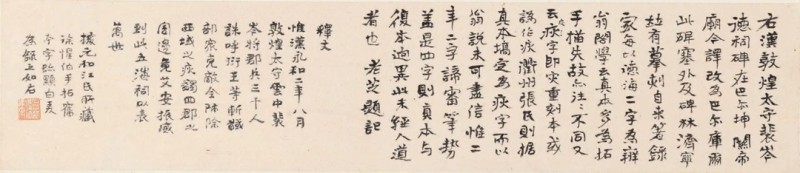 右漢敦煌太守裴岑
德祠碑在巴尔坤關帝
廟今譯改為巴里庫爾
此碑塞外及碑林濟寧
並有摹刻自來著錄
家每以德海二字為辨
翁閣學云真本多為拓
手描失故点法不同又
云疢字即宋重刻本或
謂作疢衢州張氏則據
真本塙定為疢字而以
翁說未可盡信惟二
年二字諦審筆勢
蓋是四字則真本与
復本迥異此未經人道
者也 老芝題記
釋文
惟漢永和二年八月
敦煌太守雲中裴
岑將郡兵三千人
誅呼衍王等斬馘
部眾克敵全師除
西域之疢蠲四郡之
害邊竟乂安振威
到此立德祠以表
萬世
據元和江氏所藏
徐惺伯手拓齋
本字跡顯白爰
為錄之如右